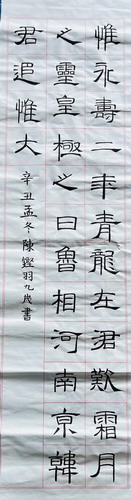 惟永壽二年青龍在君歎霜月
之靈皇極之日魯相河南京韓
君追惟大
辛丑孟冬陳鏗羽九歲書